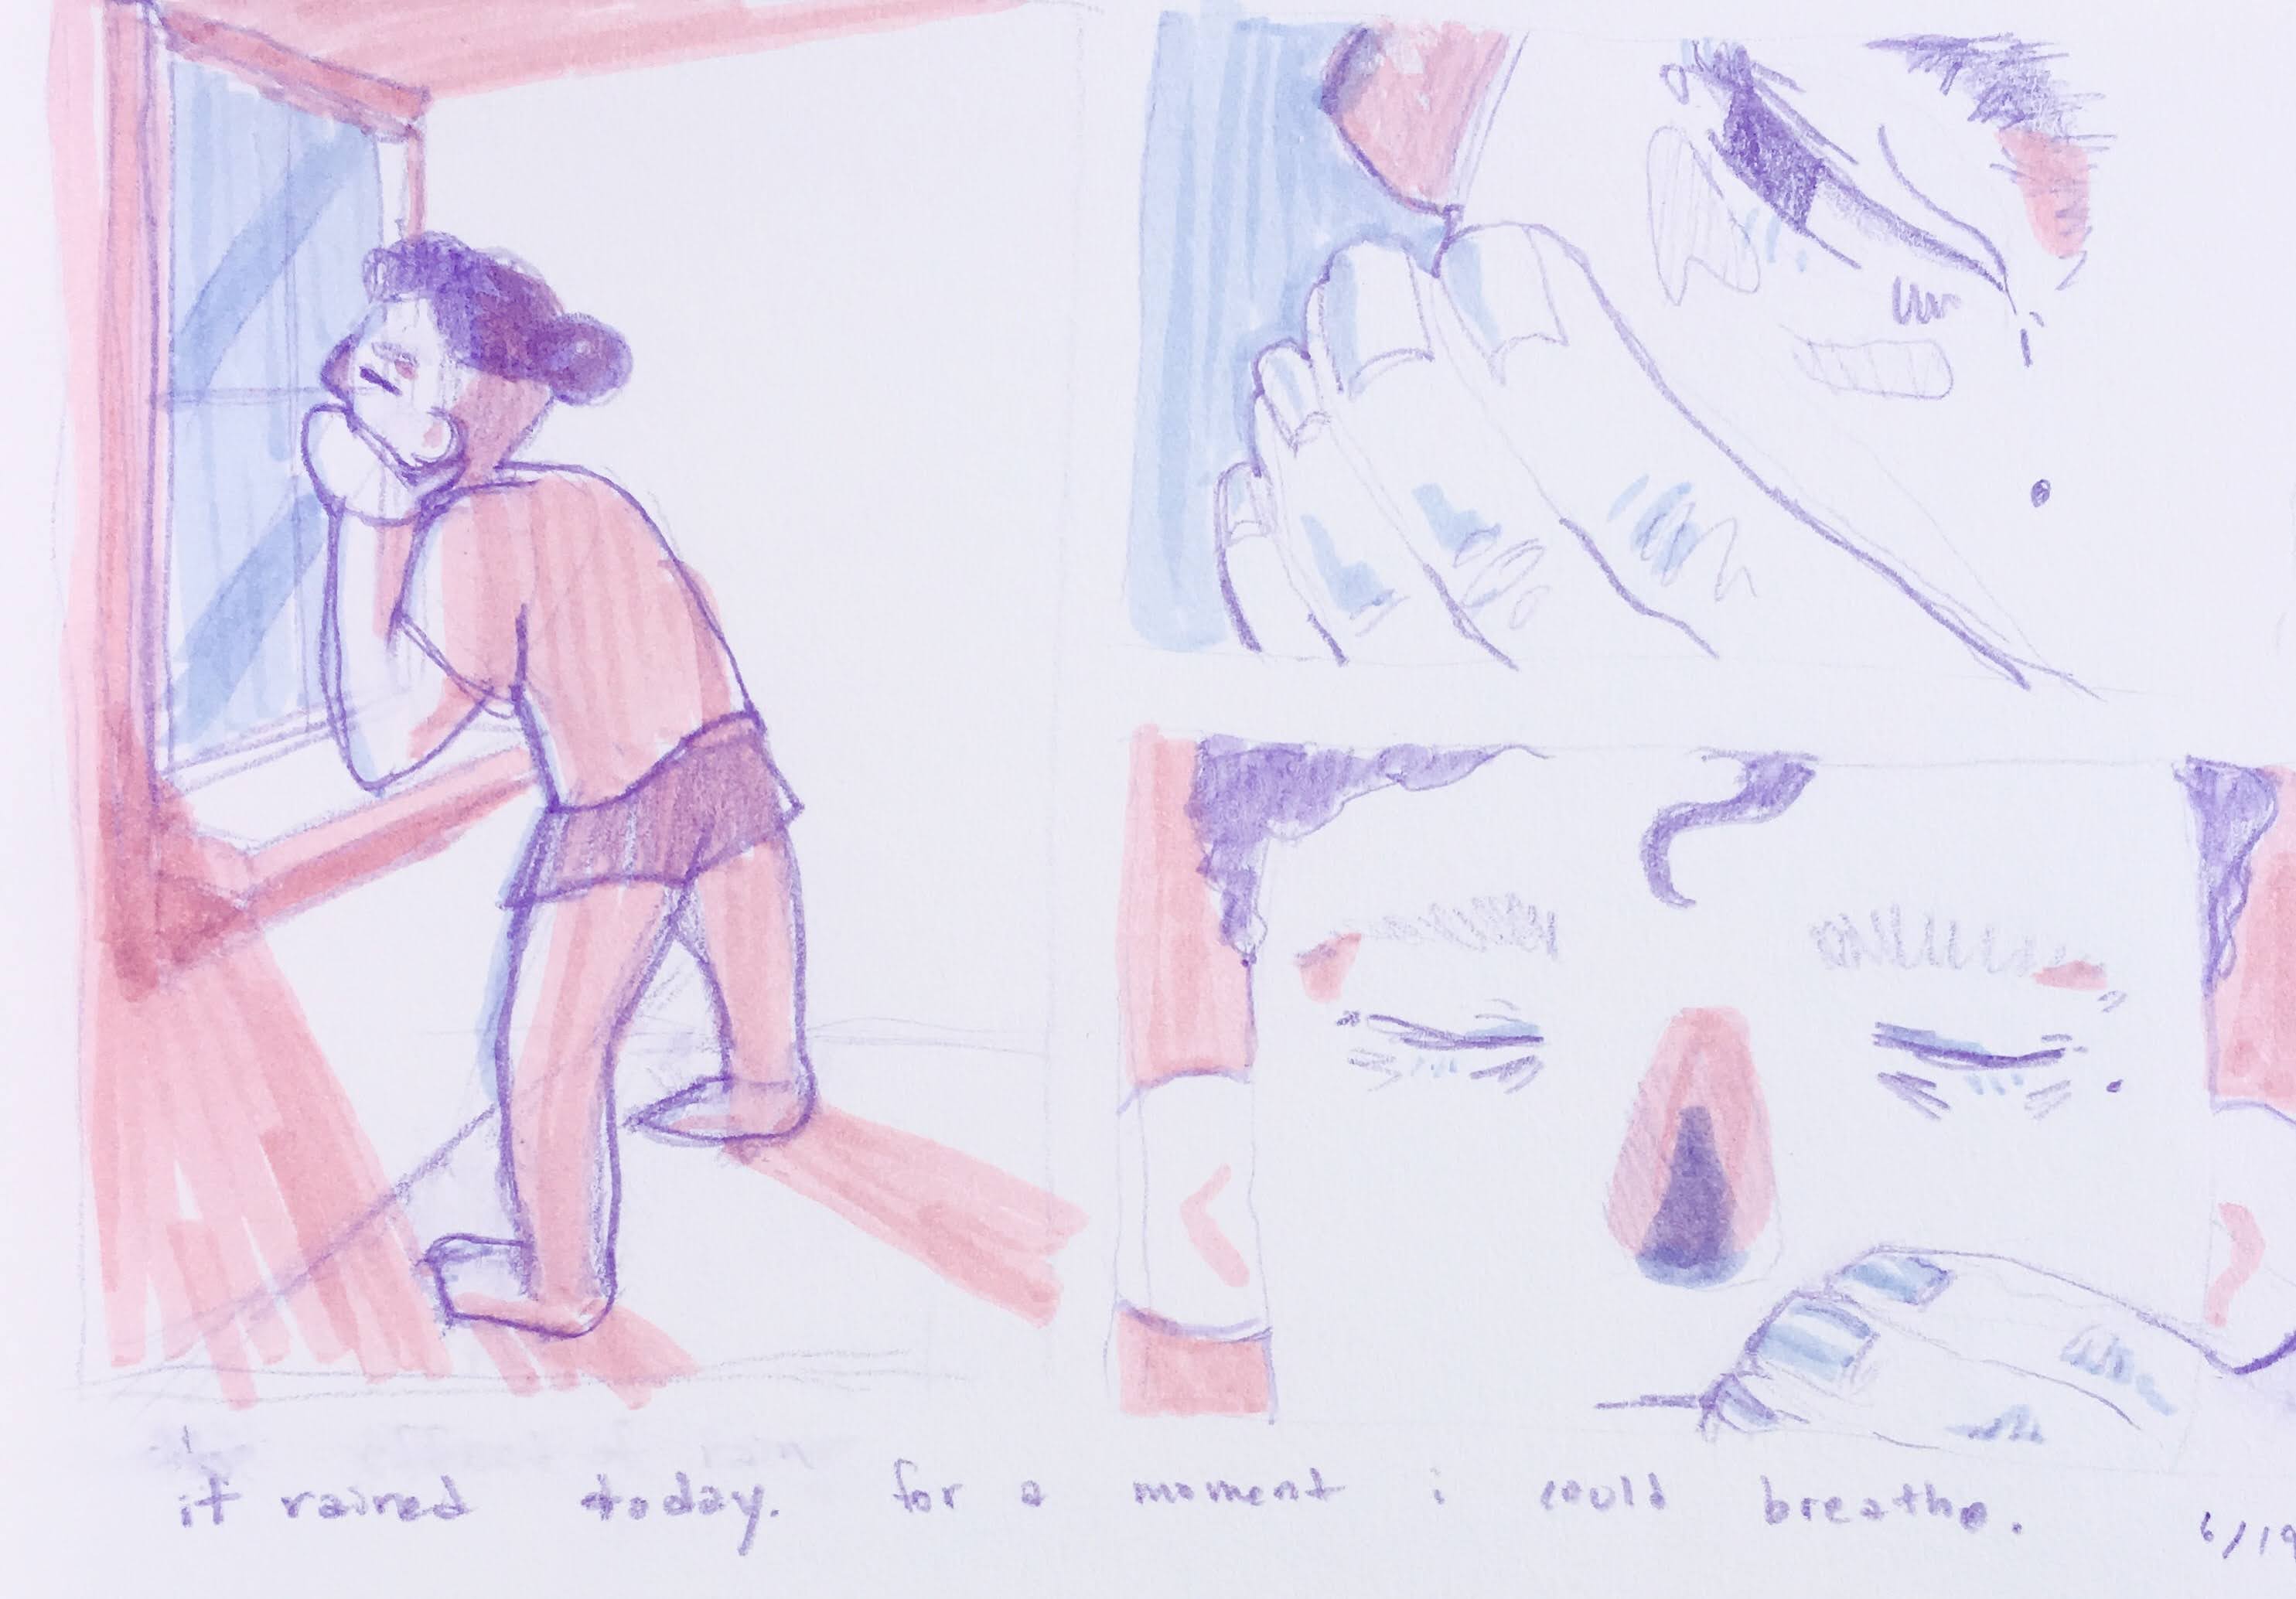 it rained today. for a moment i could breathe. 6/19